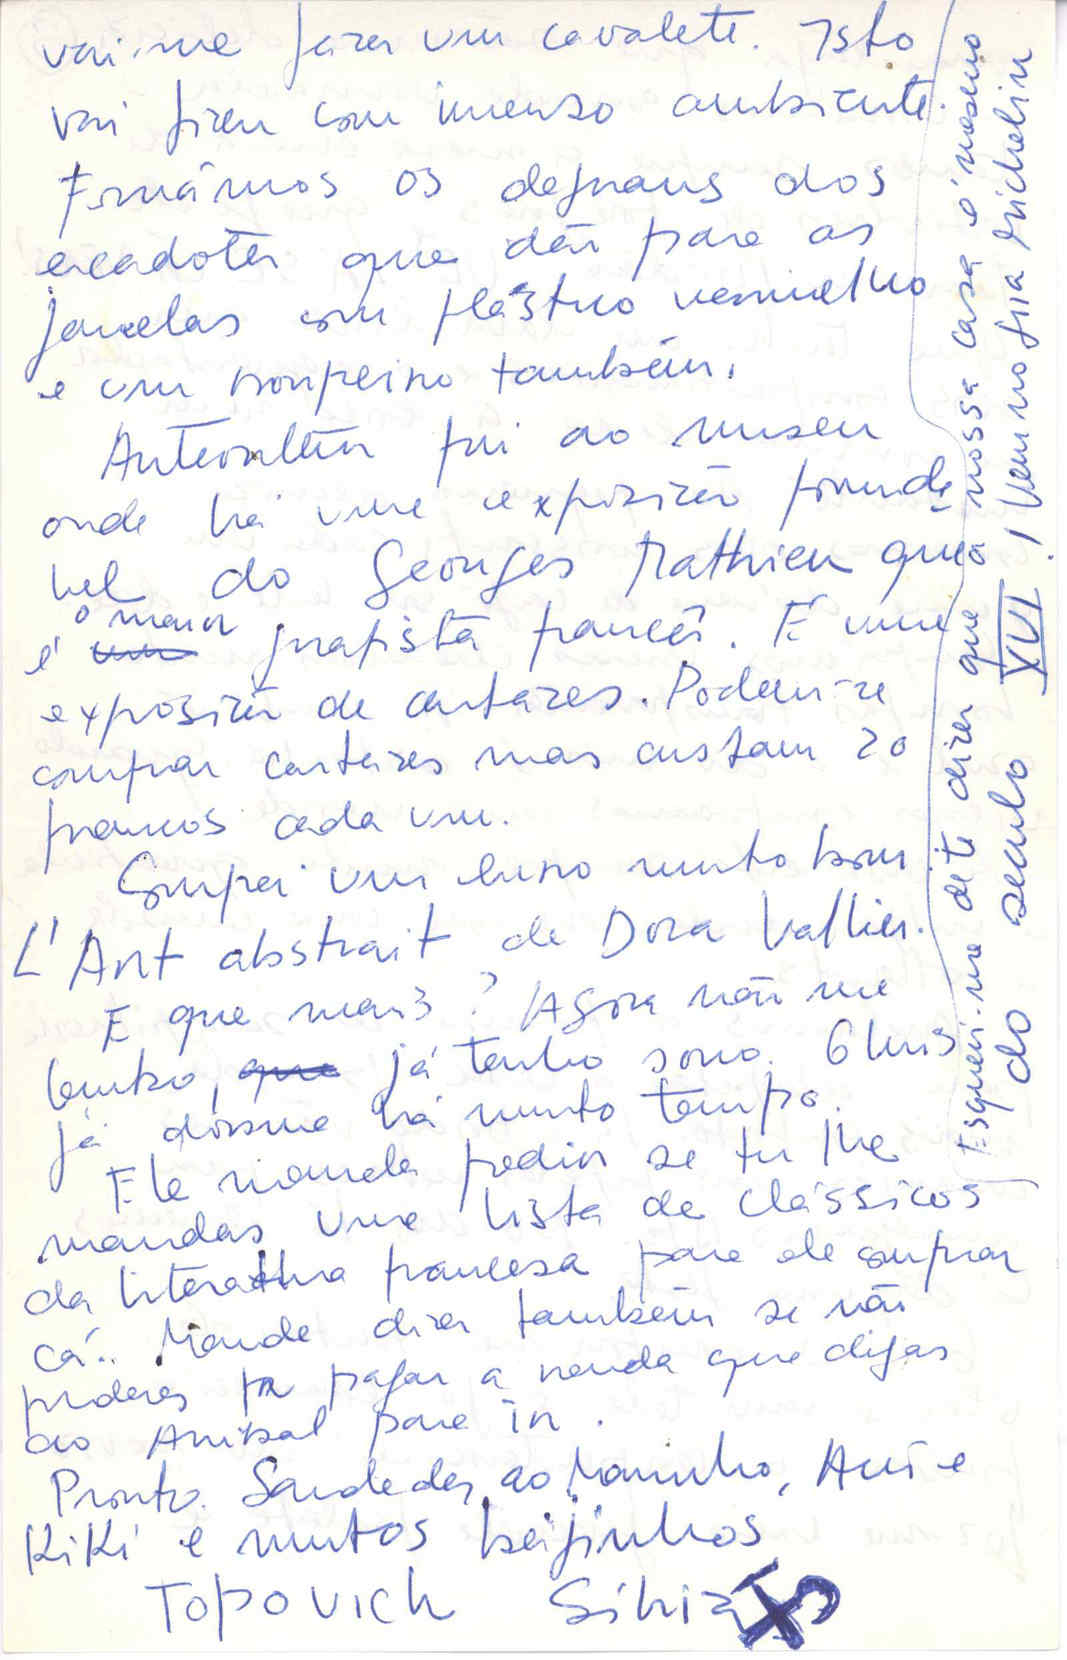 vai-me fazer um cavalete. Isto
vai ficar com imenso ambiente.
Forrámos os degraus dos
escadotes que dão para as
janelas com plástico vermelho
e um roupeiro também.
Anteontem fui ao museu
onde há uma exposição formidá
vel do Georges Mathieu que
é o maior grafista francês. É uma
exposição de cartazes. Podem-se
comprar cartazes mas custam 20
francos cada um.
Comprei um livro muito bom
L'Art abstrait de Dora Vallier.
E que mais? Agora não me
lembro, já tenho sono. O Luis
já dorme há muito tempo.
Ele manda pedir se tu lhe
mandas uma lista de clássicos
da literatura francesa para ele comprar
cá. Mande dizer também se não
puderes ir pagar a renda que digas
ao Anibal para ir.
Pronto. Saudades ao Marinho, Avó e
Kiki e muitos beijinhos
TOPOVICH Silvia
Esqueci-me de te dizer que a nossa casa é mesmo
do século XVI. Vem no guia Michelin